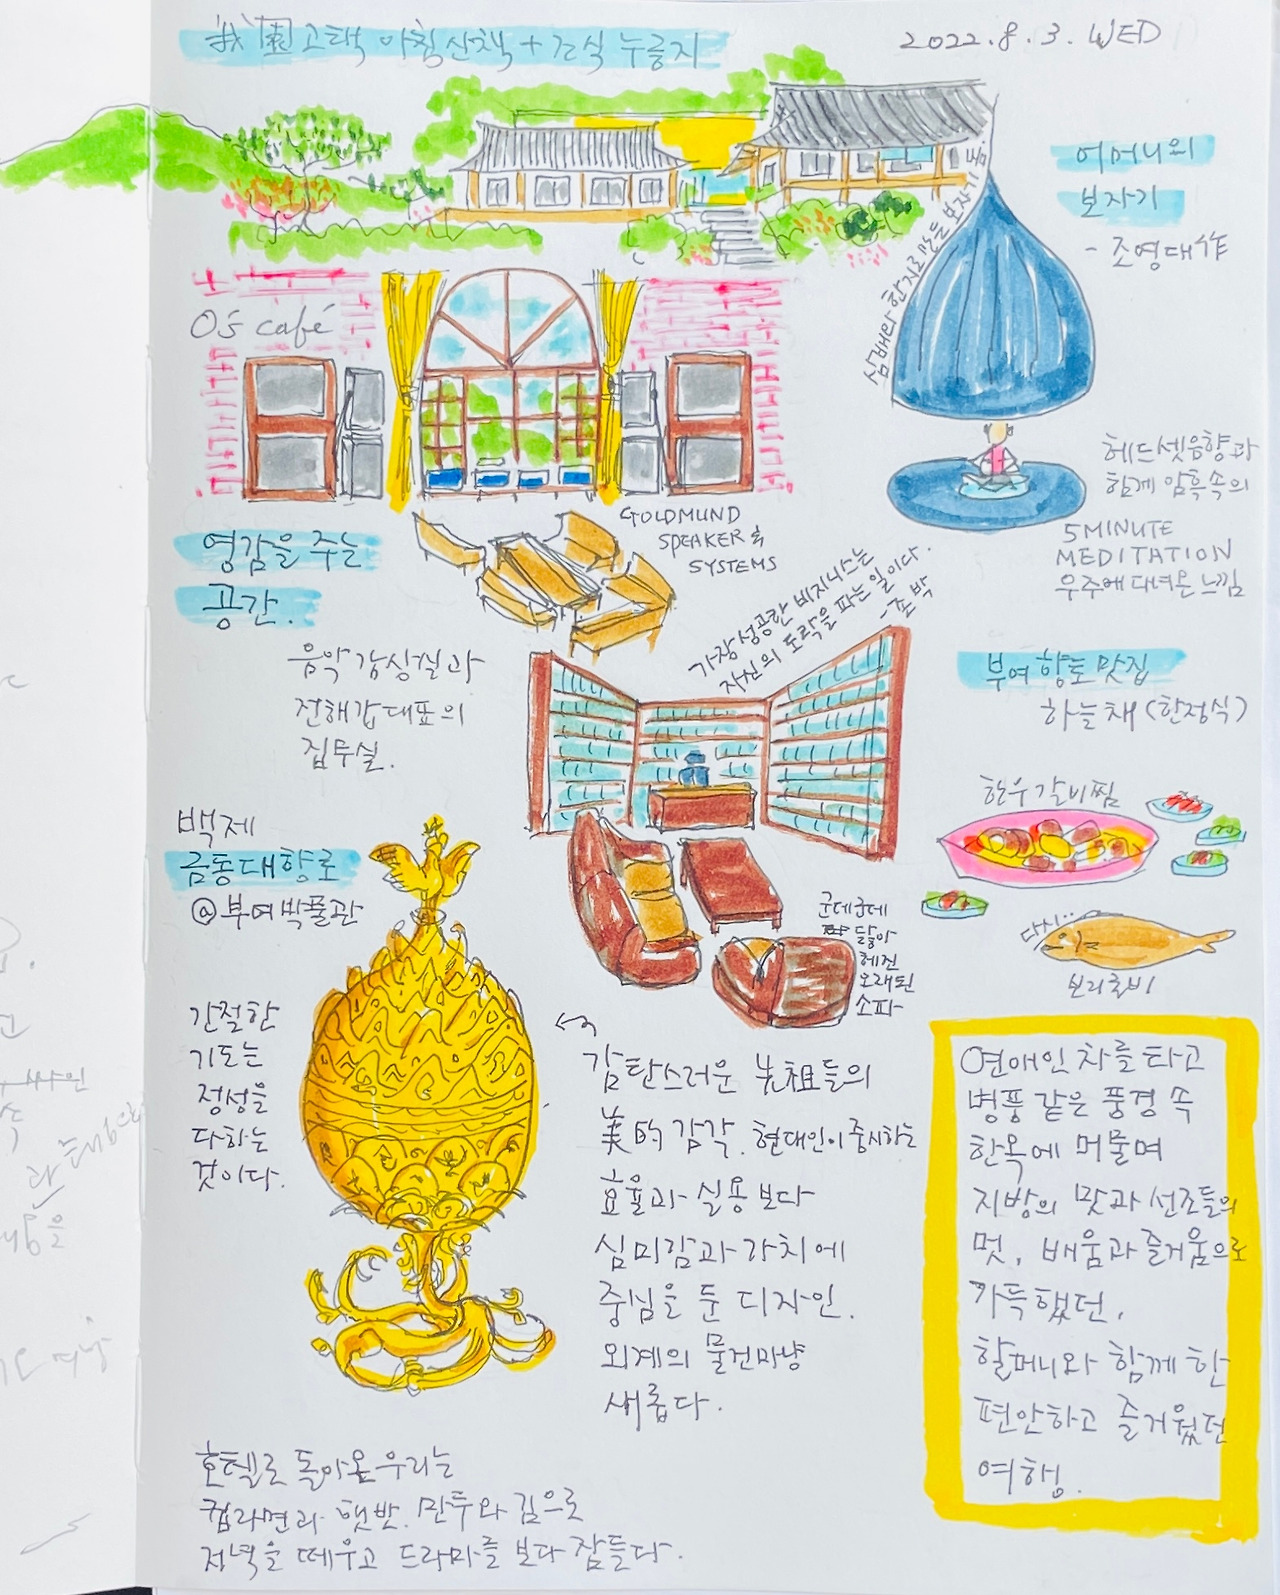 我園고택 아침산책 + 조식 누룽지
2022.8.3. WED
어머니의
보자기
- 조영대作
삼베와 한지로 만든 보자기
O's café
헤드셋음향과
함께 암흑속의
5 MINUTE
MEDITATION
우주에 다녀온 느낌
GOLDMUND
SPEAKER &
SYSTEMS
영감을 주는
공간.
음악감상실과
전해갑대표의
집무실.
가장 성공한 비지니스는
자신의 도락을 파는 일이다.
부여향토맛집
하늘채 (한정식)
한우갈비찜
다시..
보리굴비
백제
금동대향로
@부여박물관
군데군데
닳아
헤진
오래된
소파
간절한
기도는
정성을
다하는
것이다.
감탄스러운 先祖들의
美的 감각. 현대인이 중시하는
효율과 실용보다
심미감과 가치에
중심을 둔 디자인.
외계의 물건마냥
새롭다.
연애인 차를 타고
병풍 같은 풍경 속
한옥에 머물며
지방의 맛과 선조들의
멋, 배움과 즐거움으로
가득했던,
할머니와 함께한
편안하고 즐거웠던
여행.
호텔로 돌아온 우리는
컵라면과 햇반, 만두와 김으로
저녁을 떼우고 드라마를 보다 잠들다.